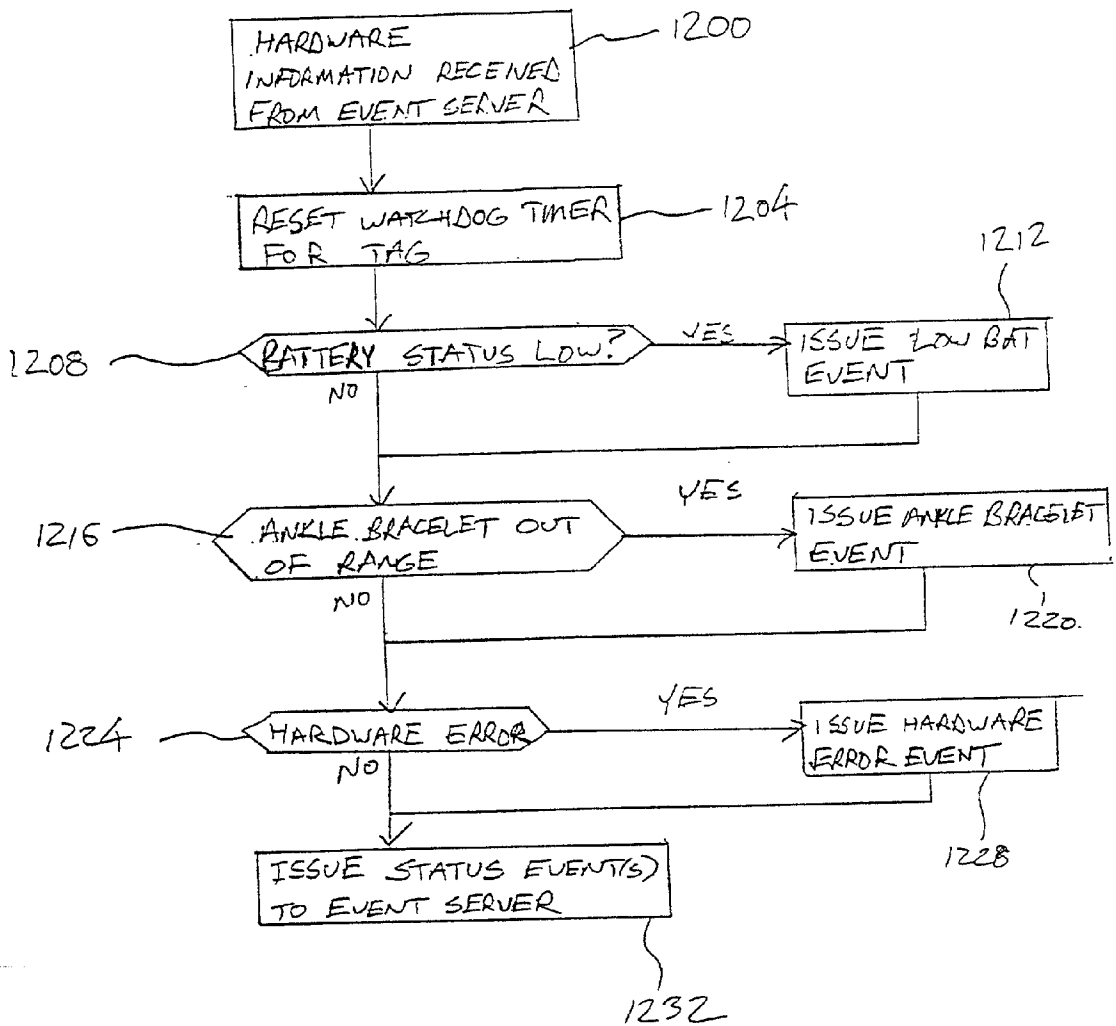 HARDWARE
INFORMATION RECEIVED
FROM EVENT SERVER
1200
RESET WATCHDOG TIMER
FOR TAG
1204
1208
BATTERY STATUS LOW?
YES
NO
1212
ISSUE LOW BAT
EVENT
1216
ANKLE BRACELET OUT
OF RANGE
YES
NO
ISSUE ANKLE BRACELET
EVENT
1220
1224
HARDWARE ERROR
YES
NO
ISSUE HARDWARE
ERROR EVENT
1228
ISSUE STATUS EVENT(S)
TO EVENT SERVER
1232